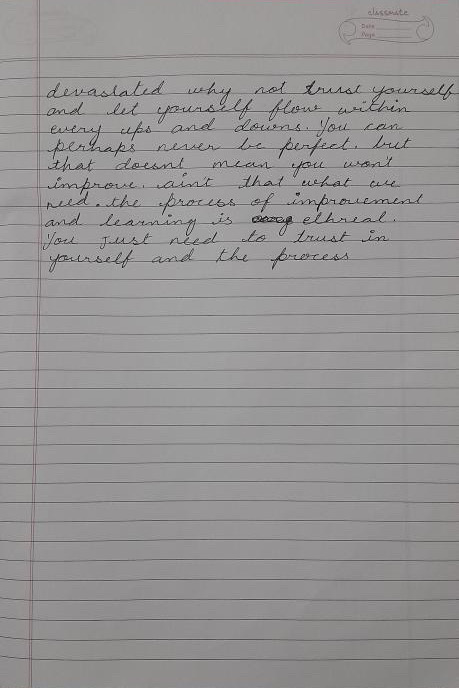 classmate
Date
Page
devastated why not trust yourself
and let yourself flow within
every ups and downs. You can
perhaps never be perfect. but
that doesnt mean you won't
improve. ain't that what we
need. the process of improvement
and learning is ethreal.
You just need to trust in
yourself and the process